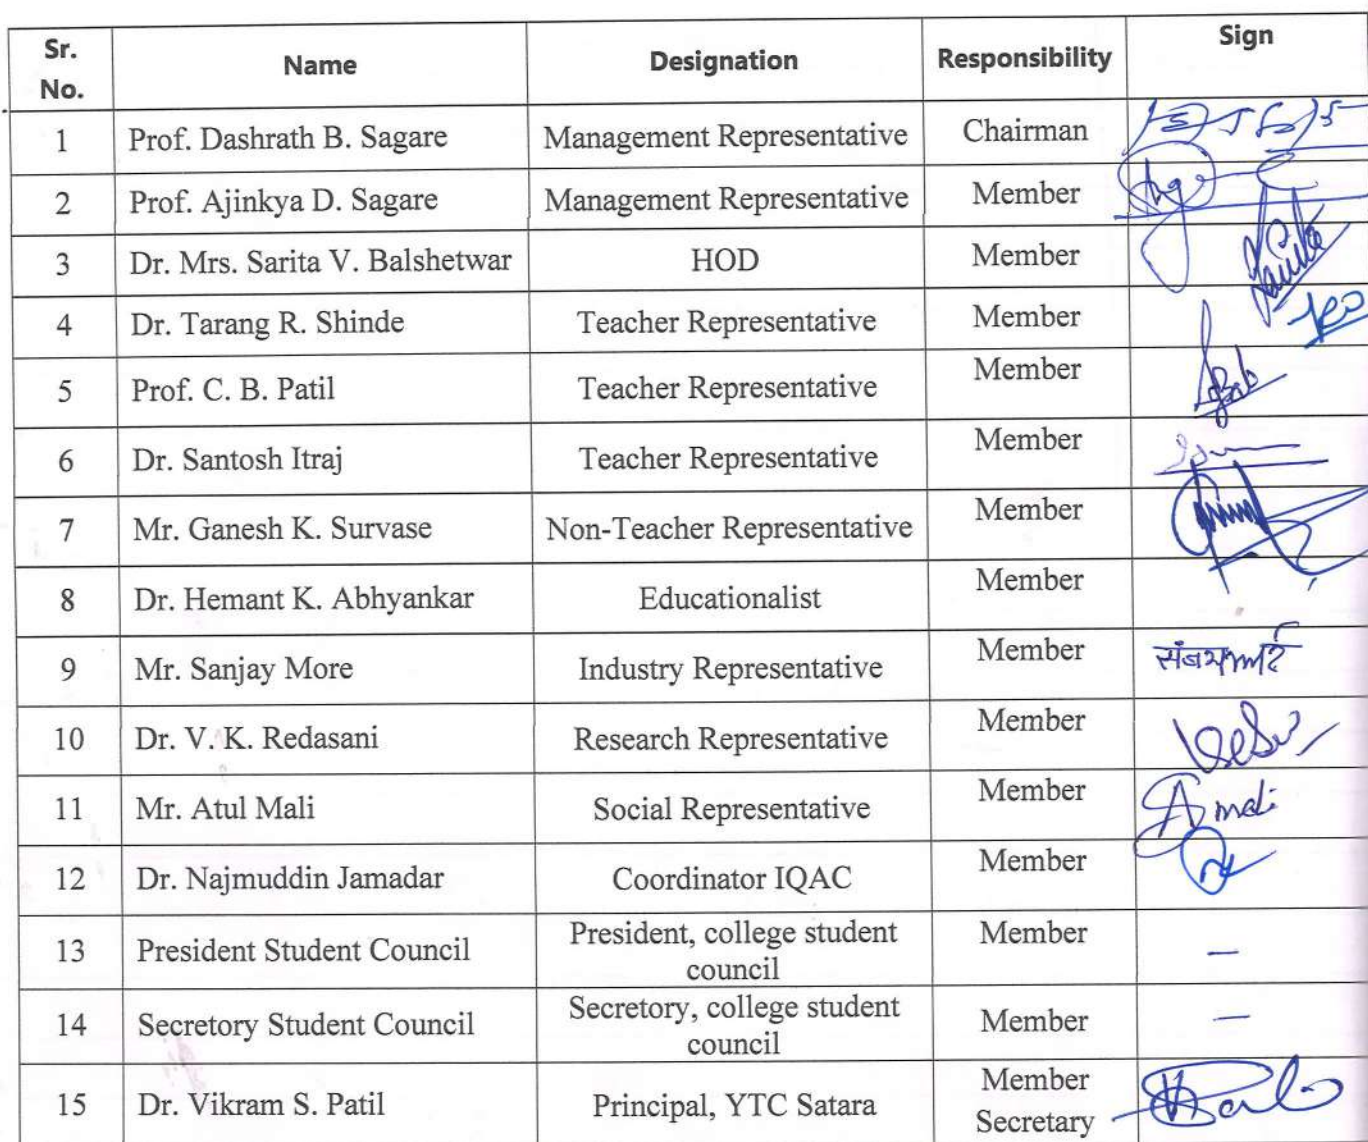 Sr. No. Name Designation Responsibility Sign
1 Prof. Dashrath B. Sagare Management Representative Chairman
2 Prof. Ajinkya D. Sagare Management Representative Member
3 Dr. Mrs. Sarita V. Balshetwar HOD Member
4 Dr. Tarang R. Shinde Teacher Representative Member
5 Prof. C. B. Patil Teacher Representative Member
6 Dr. Santosh Itraj Teacher Representative Member
7 Mr. Ganesh K. Survase Non-Teacher Representative Member
8 Dr. Hemant K. Abhyankar Educationalist Member
9 Mr. Sanjay More Industry Representative Member
10 Dr. V. K. Redasani Research Representative Member
11 Mr. Atul Mali Social Representative Member
12 Dr. Najmuddin Jamadar Coordinator IQAC Member
13 President Student Council President, college student council Member –
14 Secretory Student Council Secretory, college student council Member –
15 Dr. Vikram S. Patil Principal, YTC Satara Member Secretary